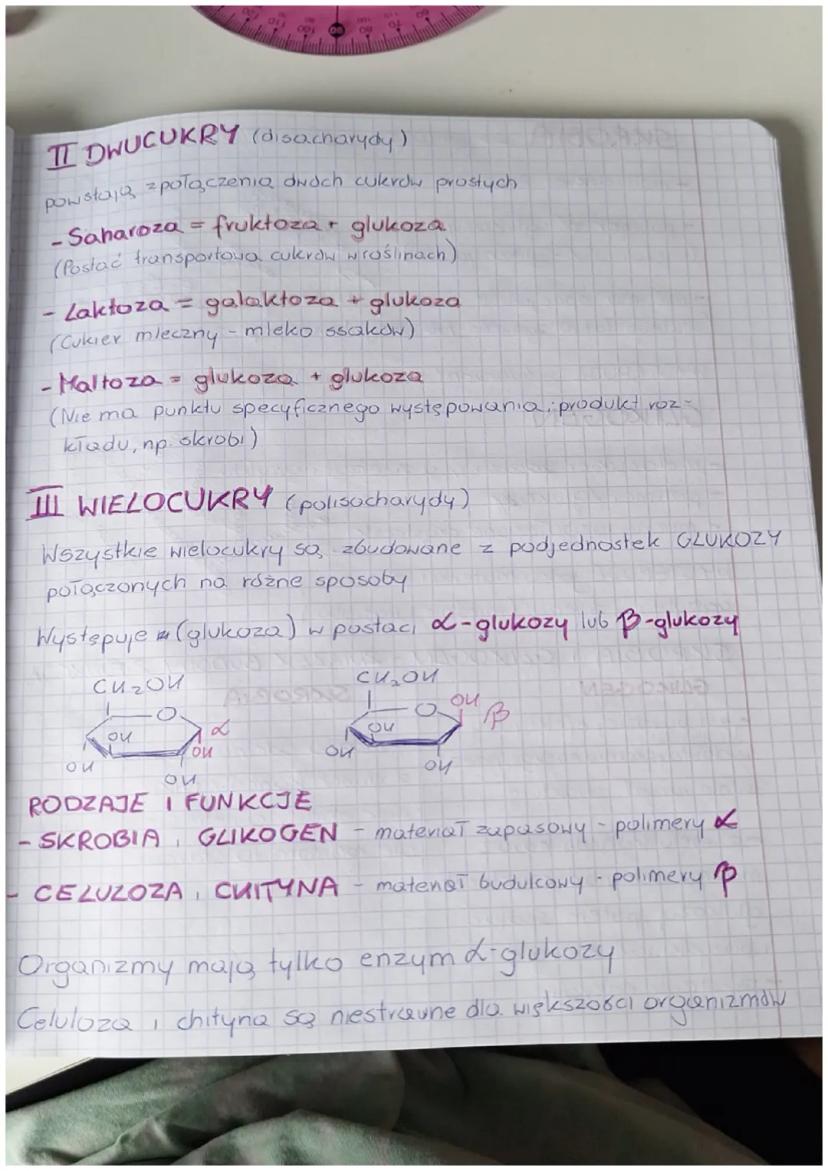 II DWUCUKRY (disacharydy)
powstają z połączenia dwóch cukrów prostych
- Saharoza = fruktoza + glukoza
(Postać transportowa cukrów w roślinach)
- Laktoza = galaktoza + glukoza
(Cukier mleczny - mleko ssaków)
- Maltoza = glukoza + glukoza
(Nie ma punktu specyficznego występowania, produkt roz-
kładu, np. skrobi)
III WIELOCUKRY (polisacharydy)
Wszystkie wielocukry są zbudowane z podjednostek GLUKOZY
połączonych na różne sposoby
Występuje (glukoza) w postaci α-glukozy lub β-glukozy
CH₂OH CH₂OH
O O OH β
OH α OH
OH OH
OH OH OH OH
RODZAJE I FUNKCJE
- SKROBIA, GLIKOGEN - materiał zapasowy - polimery α
- CELULOZA, CHITYNA - materiał budulcowy - polimery β
Organizmy mają tylko enzym α-glukozy
Celuloza i chityna są niestrawne dla większości organizmów